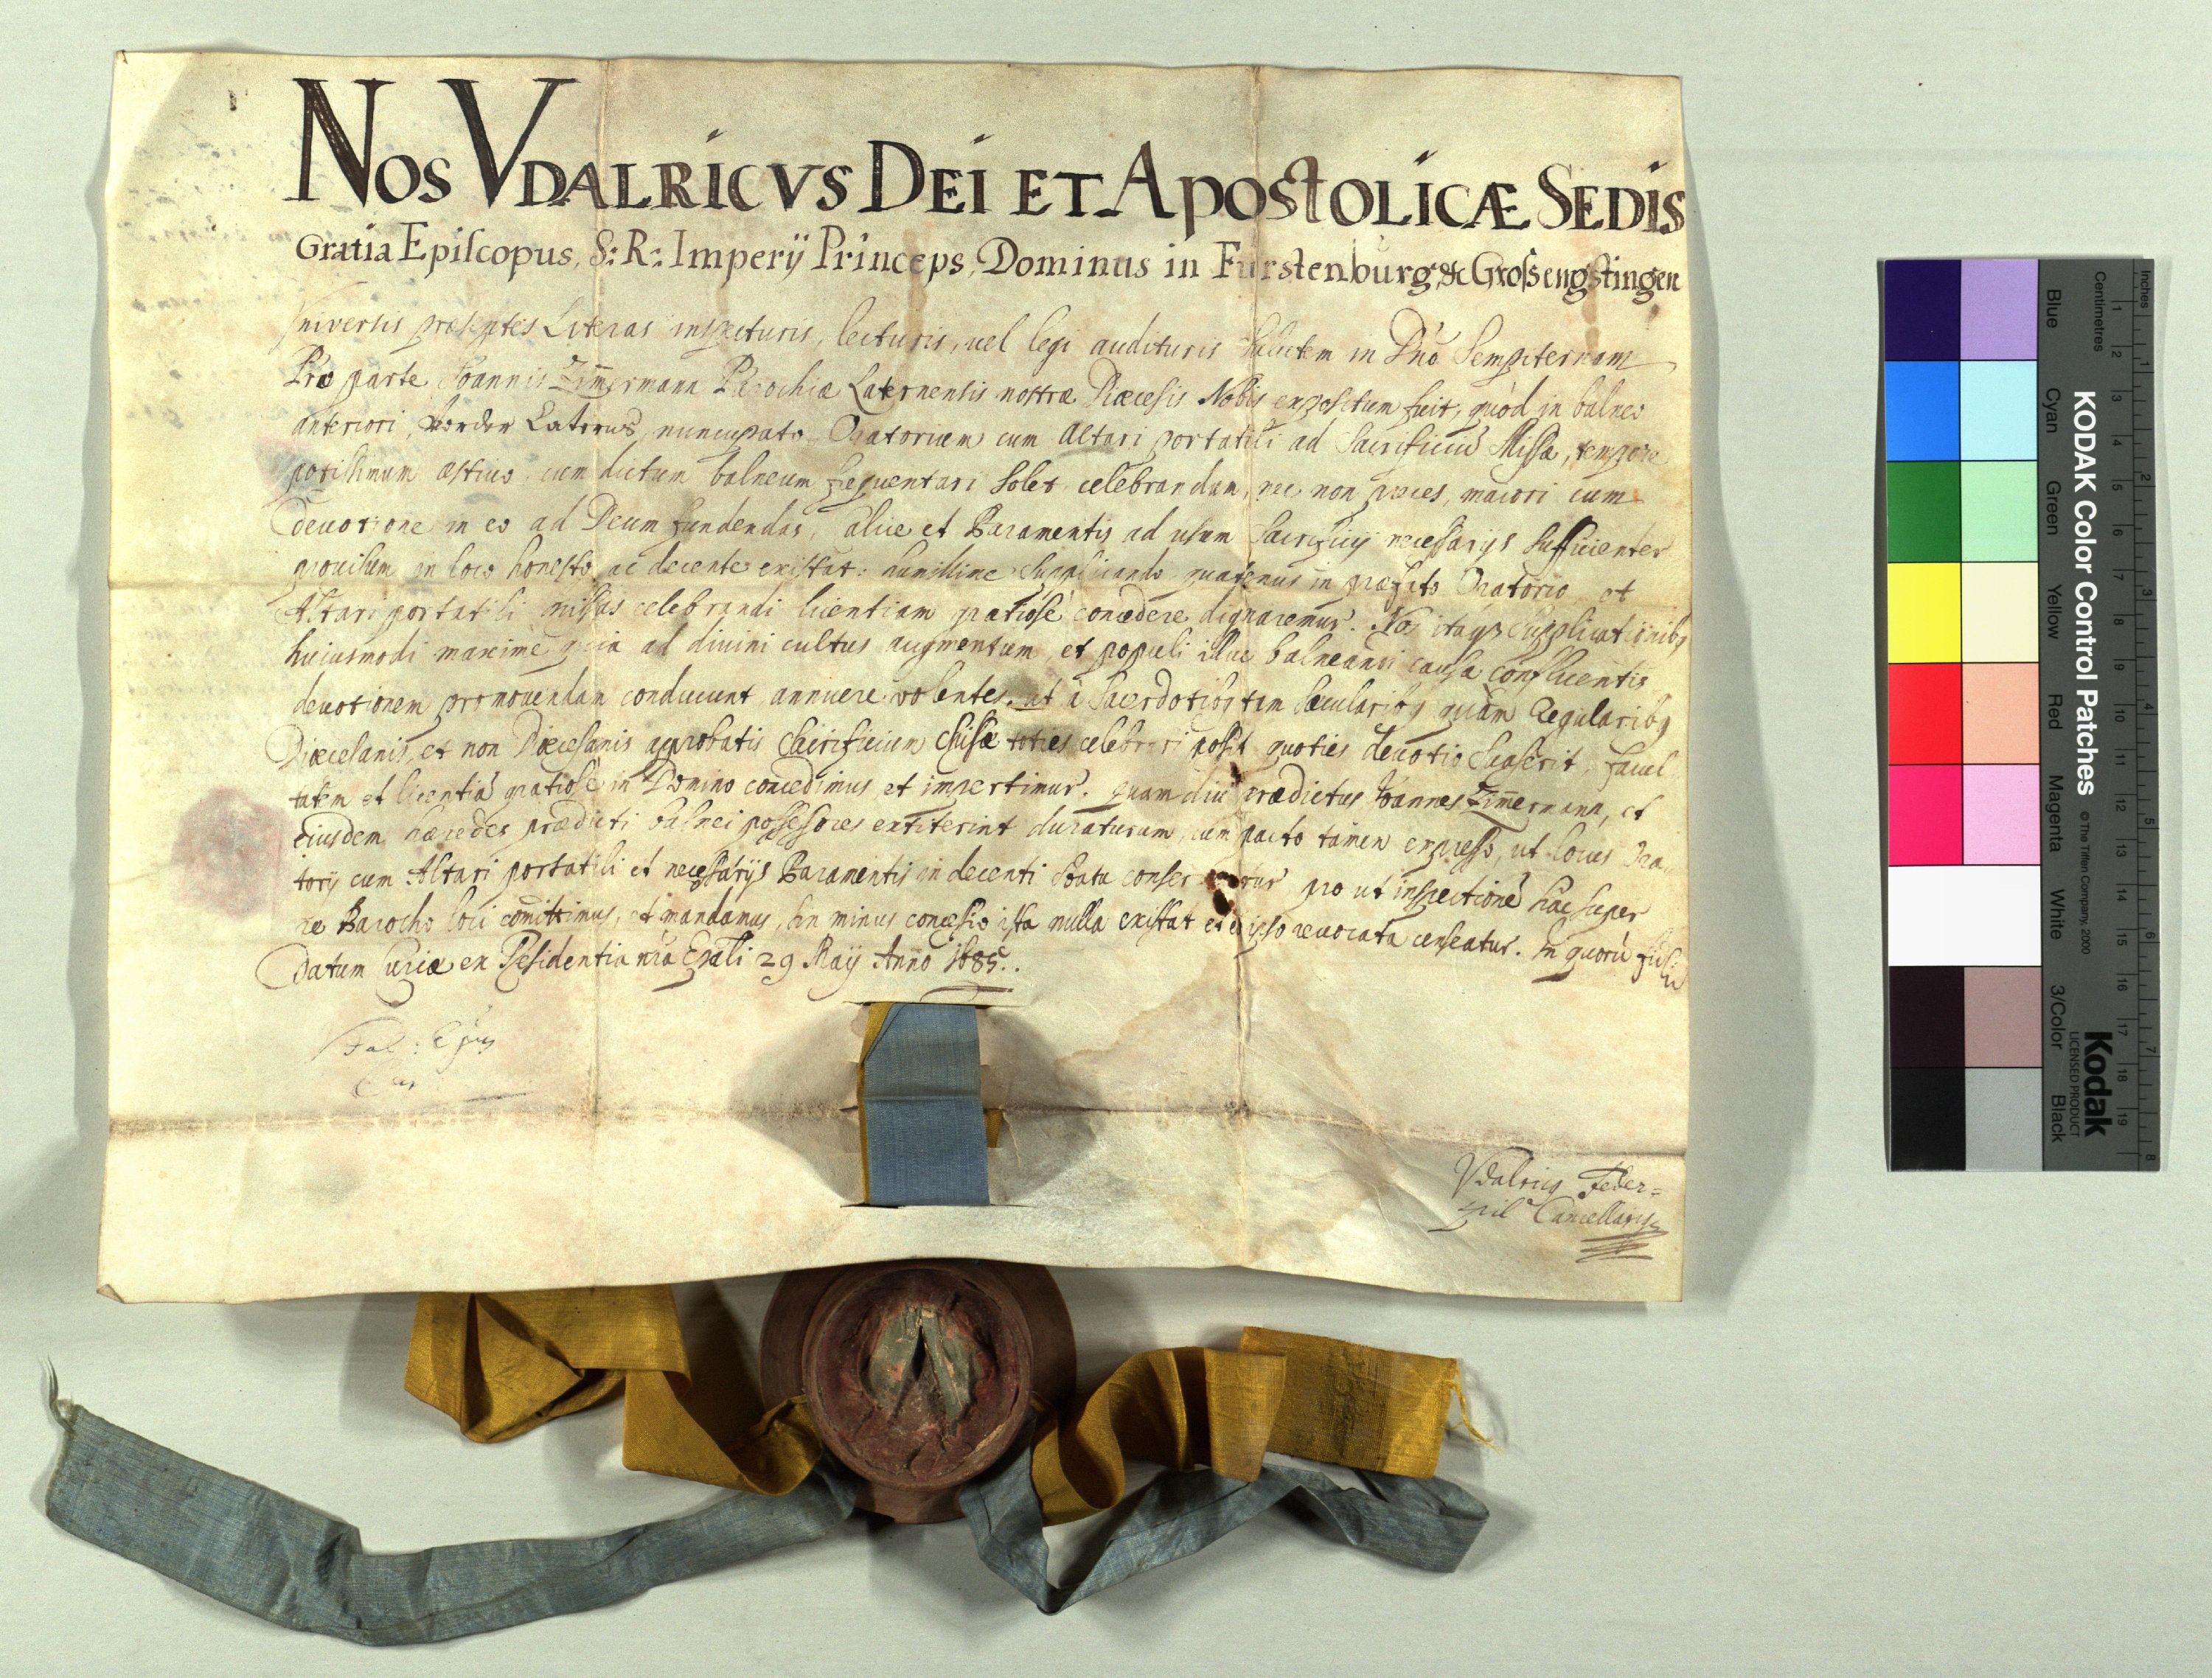 NOS VDALRICVS DEI ET APOSTOLICÆ SEDIS
Gratia Episcopus, S: R: Imperÿ Princeps, Dominus in Fürstenburg & Grossengstingen
Vniversis præsentes Literas inspecturis, lecturis, vel legi audituris Salutem in Dnõ Sempiternam
Pro parte Joannis Zimermann Parochiæ Laternensis nostræ Diœcesis Nobis expositum fuit, quòd in balneo
anteriori, Vorder Laterns nuncupato Oratorium cum Altari portatili ad Sacrificiũ Missæ, tempore
potissimum æstiuo, cum dictum balneum frequentari solet celebrandum, nec non preces, maiori cum
deuotione in eo ad Deum fundendas, calice et Paramentis ad usum Sacrificÿ necessarÿs sufficienter
prouisum in loco honesto, ac decente existat: humillime supplicando quatenus in præfato Oratorio et
Altari portatili missas celebrandi licentiam gratiosè concedere dignaremur. Nos itaq3 supplicationibq
huiusmodi maxime quia ad diuini cultus augmentum, et populi illuc balneandi causa confluentis
deuotionem promouendam conducunt annuere volentes, ut à Sacerdotibq tam Sæcularibq quàm Regularibq
Diœcesanis, et non Diœcesanis approbatis Sacrificium Missæ toties celebrari possit quoties deuotio suaserit, facul
tatem et licentiã gratiosè in Domino concedimus et impertimur. quam diu prædictus Joannes Zimermann, et
eiusdem hæredes prædicti balnei possessores extiterint duraturam, cum pacto tamen expresso, ut locus Ora,
torÿ cum Altari portatili et necessarÿs Paramentis in decenti statu conseruetur pro ut inspectionẽ hac super
re Parocho loci comittimus, et mandamus, sin minus concessio ista nulla existat et eo ipso reuocata censeatur. In quorũ fidẽ
Datum Curiæ ex Residentia nrã Epali 29 Maÿ Anno 1685.
Vdalricus Feder=
spil Cancellarius
KODAK Color Control Patches
©The Tiffen Company, 2000
Kodak
LICENSED PRODUCT
Blue Cyan Green Yellow Red Magenta White 3/Color Black
Inches 1 2 3 4 5 6 7 8
Centimetres 1 2 3 4 5 6 7 8 9 10 11 12 13 14 15 16 17 18 19